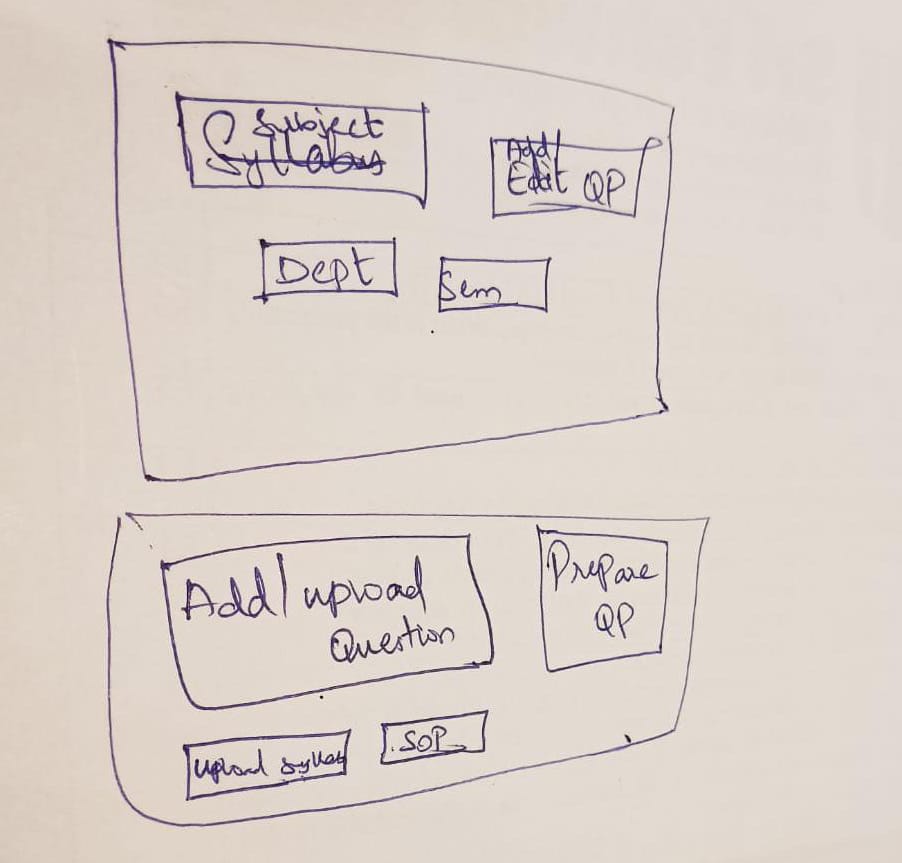 Subject
Syllabus
Add/
Edit QP
Dept
Sem
Add/upload
Question
Prepare
QP
Upload syllab
SOP